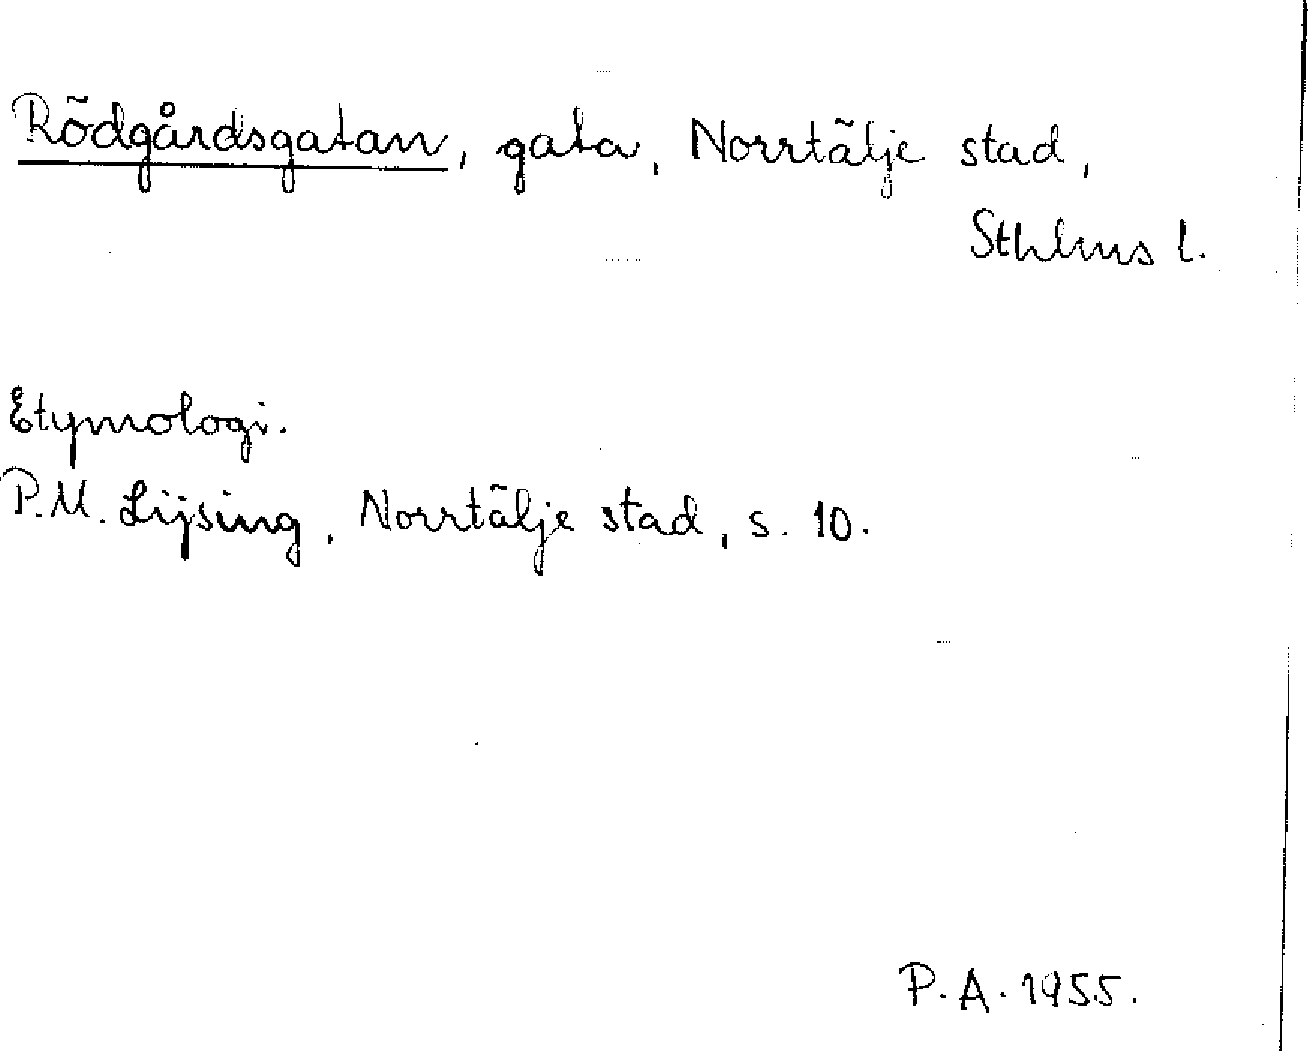 Rödgårdsgatan, gata, Norrtälje stad,
Sthlms l.
Etymologi.
P.M. Lijsing, Norrtälje stad, s. 10.
P.A. 1955.